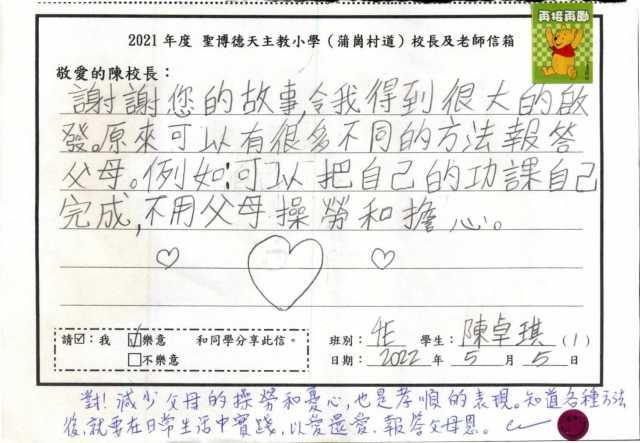 再接再勵
2021 年度 聖博德天主教小學（蒲崗村道）校長及老師信箱
敬愛的陳校長：
謝謝您的故事,令我得到很大的啟
發。原來可以有很多不同的方法報答
父母。例如:可以把自己的功課自己
完成,不用父母操勞和擔心。
請☑：我 ☑樂意 和同學分享此信。 班別： 4E 學生： 陳卓琪 (1)
□不樂意 日期： 2022 年 5 月 5 日
對! 減少父母的操勞和憂心,也是孝順的表現。知道各種方法
後,就要在日常生活中實踐,以愛還愛,報答父母恩。